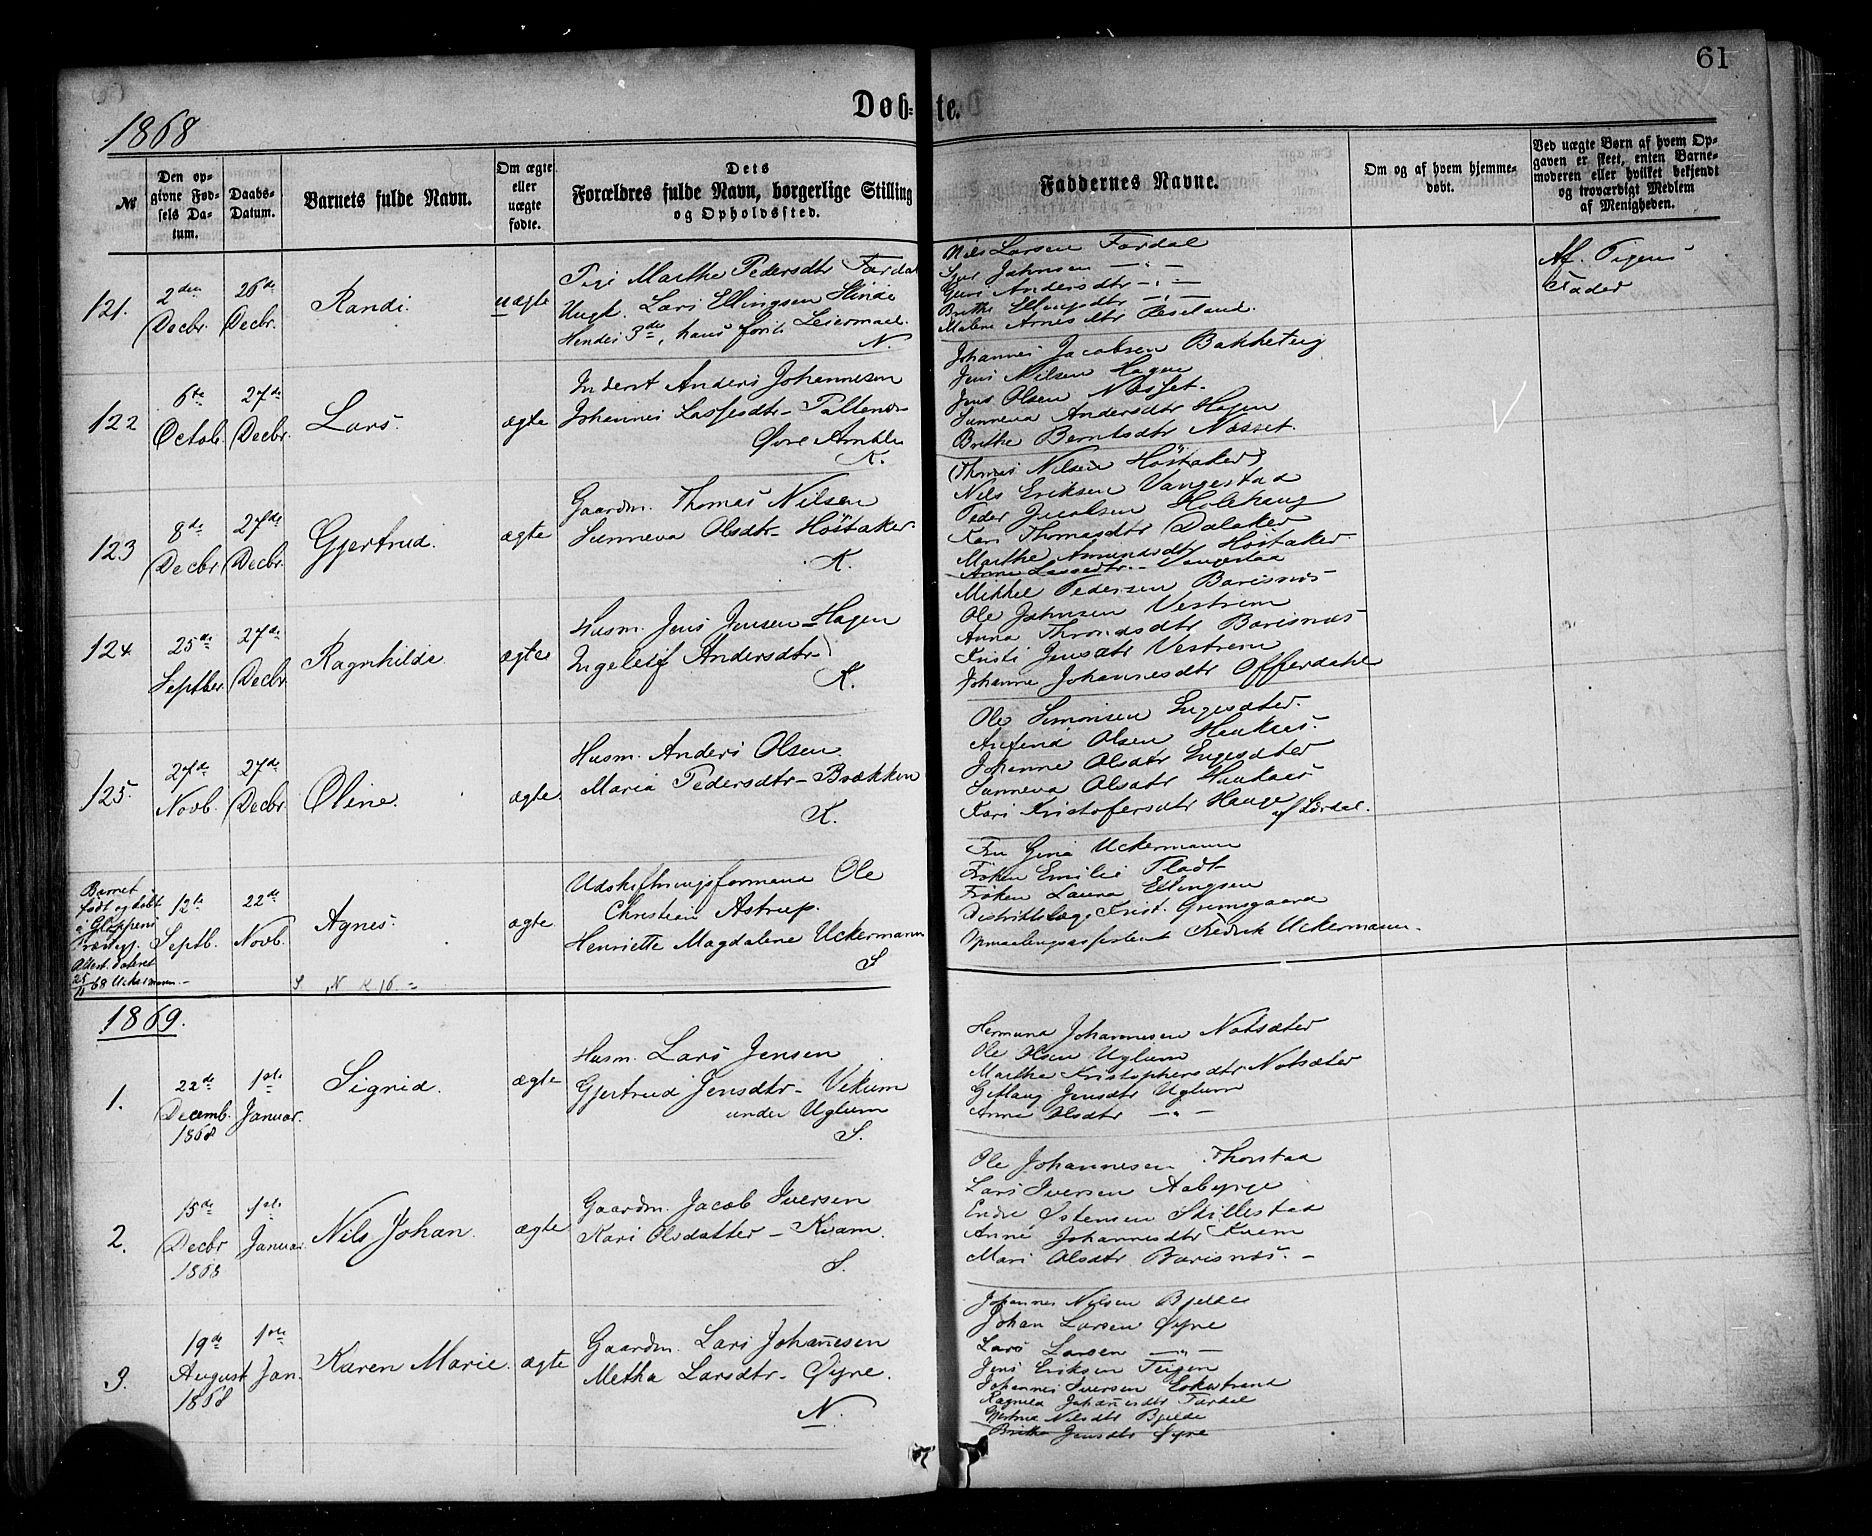 61
Døb= te.
1868
№
Den opgivne Fødsels Datum.
Daabs-Datum.
Barnets fulde Navn.
Om ægte eller uægte fødte.
Dets Forældres fulde Navn, borgerlige Stilling og Opholdssted.
Faddernes Navne.
Om og af hvem hjemmedøbt.
Ved uægte Børn af hvem Opgaven er skeet, enten Barnemoderen eller hvilket bekjendt og troværdigt Medlem af Menigheden.
121.
2den Decbr.
26de Decbr.
Randi.
uægte
Pige Marthe Pedersdtr Fardal
Ungk. Lars Ellingsen Slinde
Hendes 3die, hans første Leiermaal.
N.
Nils Larsen Fardal
Johnsen — " —
Guri Andersdtr — " —
Brithe Ellingsdtr — " —
Malene Arnesdtr
Af Pigens Fader
122
6te Octob.
27de Decbr.
Lars.
ægte
Inderst Anders Johannesen
Johannes Lassesdtr
Øvre Amble
K.
Johannes Jacobsen Bakketeig
Jens Nilsen Hagen
Jens Olsen Næsset.
Sunneva Andersdtr Hagen
Brithe Berntsdtr Næsset.
123
8de Decbr.
27de Decbr.
Gjertrud.
ægte
Gaardm. Thomas Nilsen
Sunneva Olsdtr - Høstaker
K.
(Thomas Nilsen Høstaker)
Nils Eriksen Vangestad
Peder Jacobsen Holehaug
Kari Thomasdtr Dalaker
Marthe Amundsdtr Høstaker
Anna Lassedtr - Vangestad
124.
25de Septbr.
27de Decbr.
Ragnhilda
ægte
Husm. Jens Jensen - Hagen
Ingeleif Andersdtr
K.
Mikkel Pedersen Barisnæs
Ole Johnsen Vestrem
Anna Throndsdtr Barisnæs
Kristi Jensdtr Vestrem
Johanne Johannesdtr Offerdahl
125.
27de Novb.
27de Decbr.
Oline.
ægte
Husm. Anders Olsen
Maria Pedersdtr - Brækken
K.
Ole Simonsen Engesæter.
Amund Olsen Haukaas.
Johanne Olsdtr Engesæter
Sunneva Olsdtr Haukaas
Kari Kristofersdtr Hauge
af Lærdal.
Barnet
født og døbt
i Gloppens
Præstegj.
Attest dateret
25/11 68 Uckermann.-
12te Septb.
22de Novb.
Agnes.
ægte
Udskiftningsformand Ole
Christian Astrup.
Henriette Magdalene Uckermann
S
Fru Gina Uckermann
Frøken Emilie Fladt
Frøken Laura Ellingsen
Distriktslæge Krist. Grimsgaard
Opmaalingsassistent Fredrik Uckermann.
S N K 16. -
1869.
1.
22de Decemb. 1868
1ste Januar.
Sigrid.
ægte
Husm. Lars Jensen
Gjertrud Jensdtr - Vikum
under Uglum
S.
Hermund Johannesen Notsæter
Ole Olsen Uglum
Martha Kristophersdtr Notsæter
Gitlaug Jensdtr Uglum
Anna Olsdtr — " —
2.
15de Decbr 1868
1ste Januar.
Nils Johan.
ægte
Gaardm. Jacob Iversen
Kari Olsdatter - Kvam.
S.
Ole Johannesen Thorstad
Lars Iversen Aaberge
Endre Østensen Skillestad
Anna Johannesdtr Kvam
Mari Olsdtr Barisnæs. -
3.
19de August 1868
1ste Jan.
Karen Marie.
ægte
Gaardm. Lars Johannesen
Metha Larsdtr - Øyre.
N.
Johannes Nilsen Bjelde
Johan Larsen Øyre
Lars Larsen — " —
Jens Eriksen Teigen
Johannes Iversen Eikestrand
Ragnild Johannesdtr Fardal
Gjertrud Nilsdtr Bjelde
Brithe Jensdtr Øyre